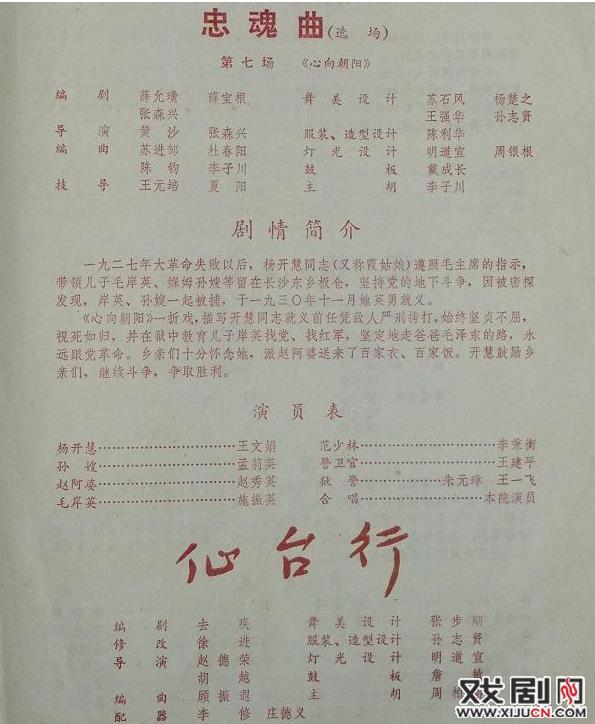 忠魂曲(选 场)
第七场 《心向朝阳》
编 剧 薛允璜 薛宝根 舞 美 设 计 苏石风 杨楚之
张森兴 王强华 孙志贤
导 演 黄 沙 张森兴 服装、造型设计 陈利华
编 曲 苏进邹 杜春阳 灯 光 设 计 明道宣 周银根
陈 钧 李子川 鼓 板 戴成长
技 导 王元培 夏 阳 主 胡 李子川
剧情简介
一九二七年大革命失败以后,杨开慧同志(又称霞姑娘)遵照毛主席的指示,
带领儿子毛岸英、褓姆孙嫂等留在长沙东乡板仓,坚持党的地下斗争,因被密探
发现,岸英、孙嫂一起被捕,于一九三〇年十一月她英勇就义。
《心向朝阳》一折戏,描写开慧同志就义前任凭敌人严刑拷打,始终坚贞不屈,
视死如归,并在狱中教育儿子岸英找党、找红军,坚定地走爸爸毛泽东的路,永
远跟党革命。乡亲们十分怀念她,派赵阿婆送来了百家衣、百家饭。开慧鼓励乡
亲们,继续斗争,争取胜利。
演员表
杨开慧……………………王文娟 范少林……………………李秉衡
孙 嫂……………………孟莉英 警卫官……………………王建平
赵阿婆……………………赵秀英 狱 警…………朱元璋 王一飞
毛岸英……………………施振英 合 唱………………本院演员
仙台行
编 剧 去 疾 舞 美 设 计 张 步 顺
修 改 徐 进 服装、造型设计 孙 志 贤
导 演 赵 德 荣 灯 光 设 计 明 道 宣
胡 越 鼓 板 詹
编 曲 顾 振 遐 主 胡 周 柏
配 器 李 修 庄德义
戏剧网
WWW.XIJUCN.COM